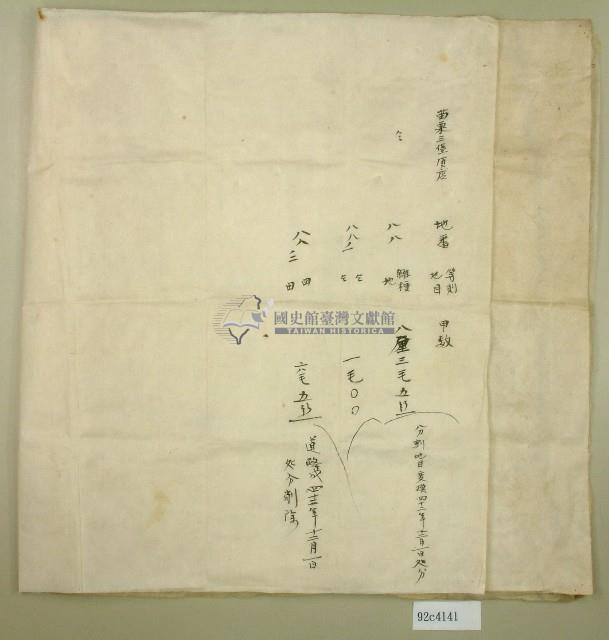 苗栗三堡頂店
地番
等則
地目
甲数
仝
八八
雑種
地
八厘三毛五糸
分割地目変換四十二年十二月一日処分
八八ノ一
仝
仝
一毛〇〇
八八ノ二
田
田
六毛五糸
道路成四十二年十二月一日
処分削除
國史館臺灣文獻館
TAIWAN HISTORICA
92c4141